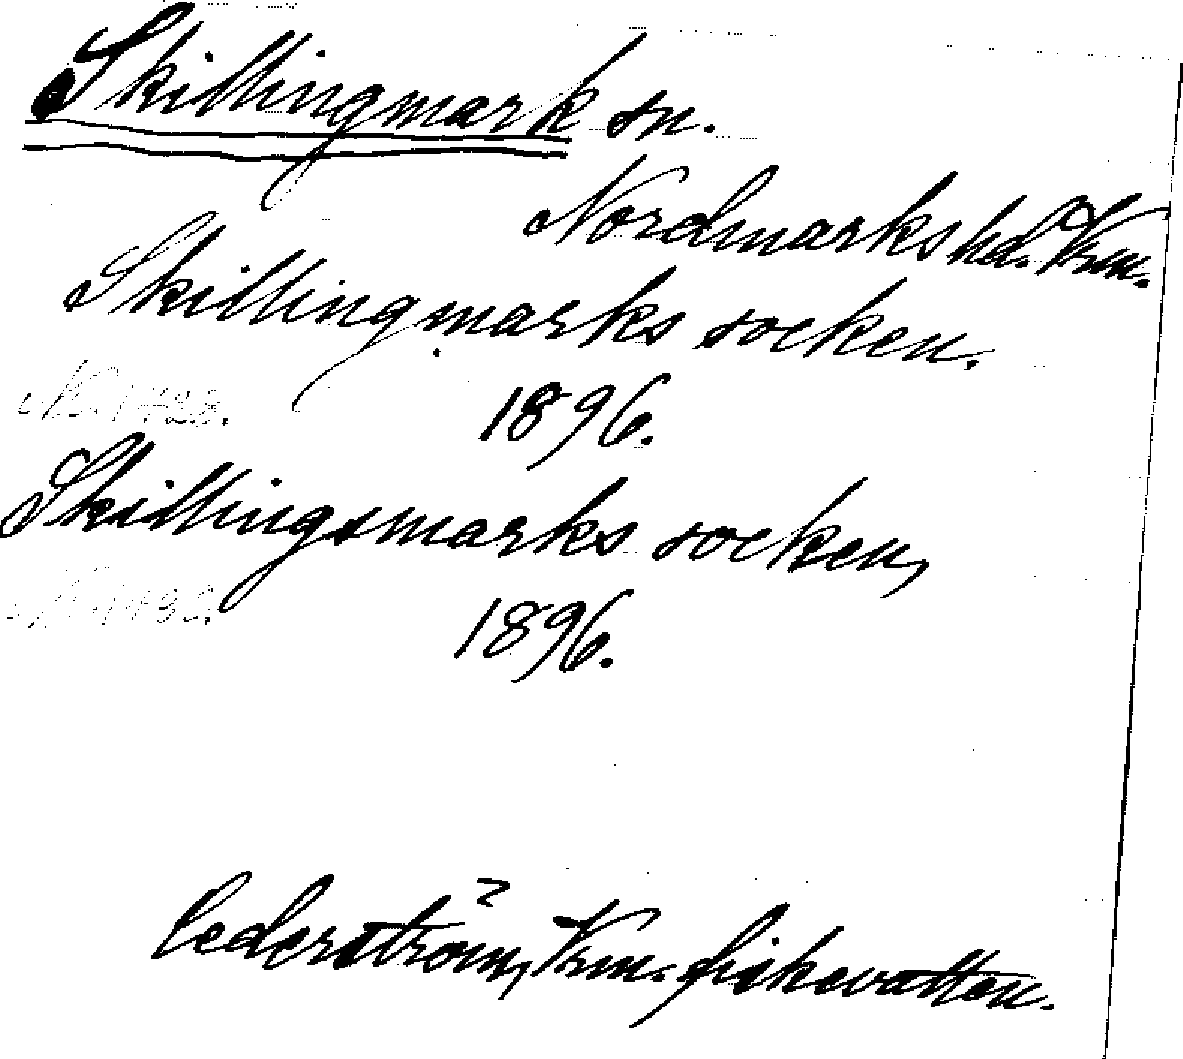 Skillingmark sn.
Nordmarks hd. Vrm.
Skillingmarks socken.
1896.
Skillingsmarks socken,
1896.
Cederström, Vrm. fiskevatten.